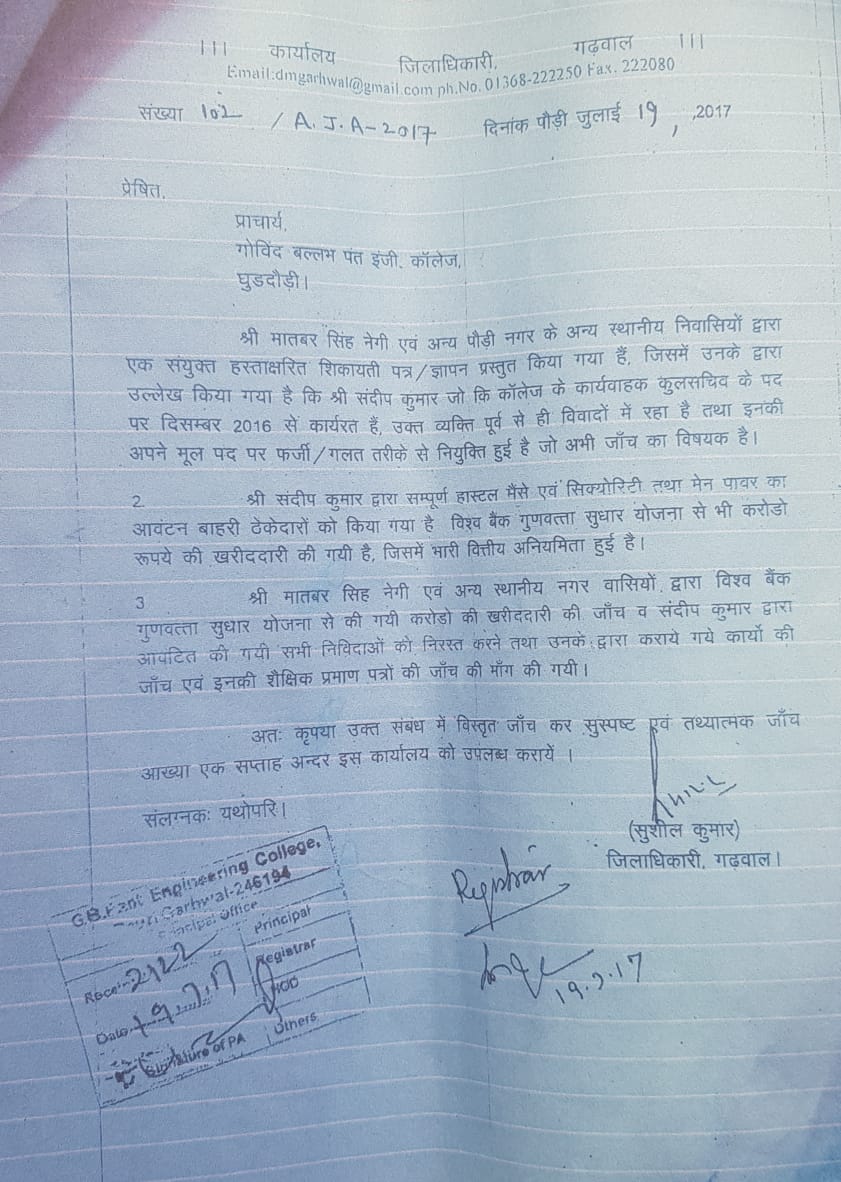 ।।। कार्यालय जिलाधिकारी, गढ़वाल ।।।
Email:dmgarhwal@gmail.com ph.No. 01368-222250 Fax. 222080
संख्या 102 / A.J.A-2017 दिनांक पौड़ी जुलाई 19, ,2017
प्रेषित,
प्राचार्य,
गोविंद बल्लभ पंत इंजी. कॉलेज,
घुडदौड़ी।
श्री मातबर सिंह नेगी एवं अन्य पौड़ी नगर के अन्य स्थानीय निवासियों द्वारा
एक संयुक्त हस्ताक्षरित शिकायती पत्र/ज्ञापन प्रस्तुत किया गया हैं, जिसमें उनके द्वारा
उल्लेख किया गया है कि श्री संदीप कुमार जो कि कॉलेज के कार्यवाहक कुलसचिव के पद
पर दिसम्बर 2016 से कार्यरत हैं, उक्त व्यक्ति पूर्व से ही विवादों में रहा है तथा इनकी
अपने मूल पद पर फर्जी/गलत तरीके से नियुक्ति हुई है जो अभी जाँच का विषयक है।
2 श्री संदीप कुमार द्वारा सम्पूर्ण हास्टल मैसे एवं सिक्योरिटी तथा मेन पावर का
आवंटन बाहरी ठेकेदारों को किया गया है विश्व बैंक गुणवत्ता सुधार योजना से भी करोडो
रूपये की खरीददारी की गयी है, जिसमें भारी वित्तीय अनियमिता हुई है।
3 श्री मातबर सिह नेगी एवं अन्य स्थानीय नगर वासियों द्वारा विश्व बैंक
गुणवत्ता सुधार योजना से की गयी करोडो की खरीददारी की जाँच व संदीप कुमार द्वारा
आवंटित की गयी सभी निविदाओं को निरस्त करने तथा उनके द्वारा कराये गये कार्यो की
जाँच एवं इनकी शैक्षिक प्रमाण पत्रों की जाँच की माँग की गयी।
अतः कृपया उक्त संबंध में विस्तृत जाँच कर सुस्पष्ट एवं तथ्यात्मक जाँच
आख्या एक सप्ताह अन्दर इस कार्यालय को उपलब्ध करायें ।
संलग्नकः यथोपरि।
(सुशील कुमार)
जिलाधिकारी, गढ़वाल।
Registrar
19.7.17
G.B.Pant Engineering College,
Pauri Garhwal-246194
Principal Office
Principal
Registrar
Recei 2122
HOD
Date 19.7.17
Others
Signature of PA